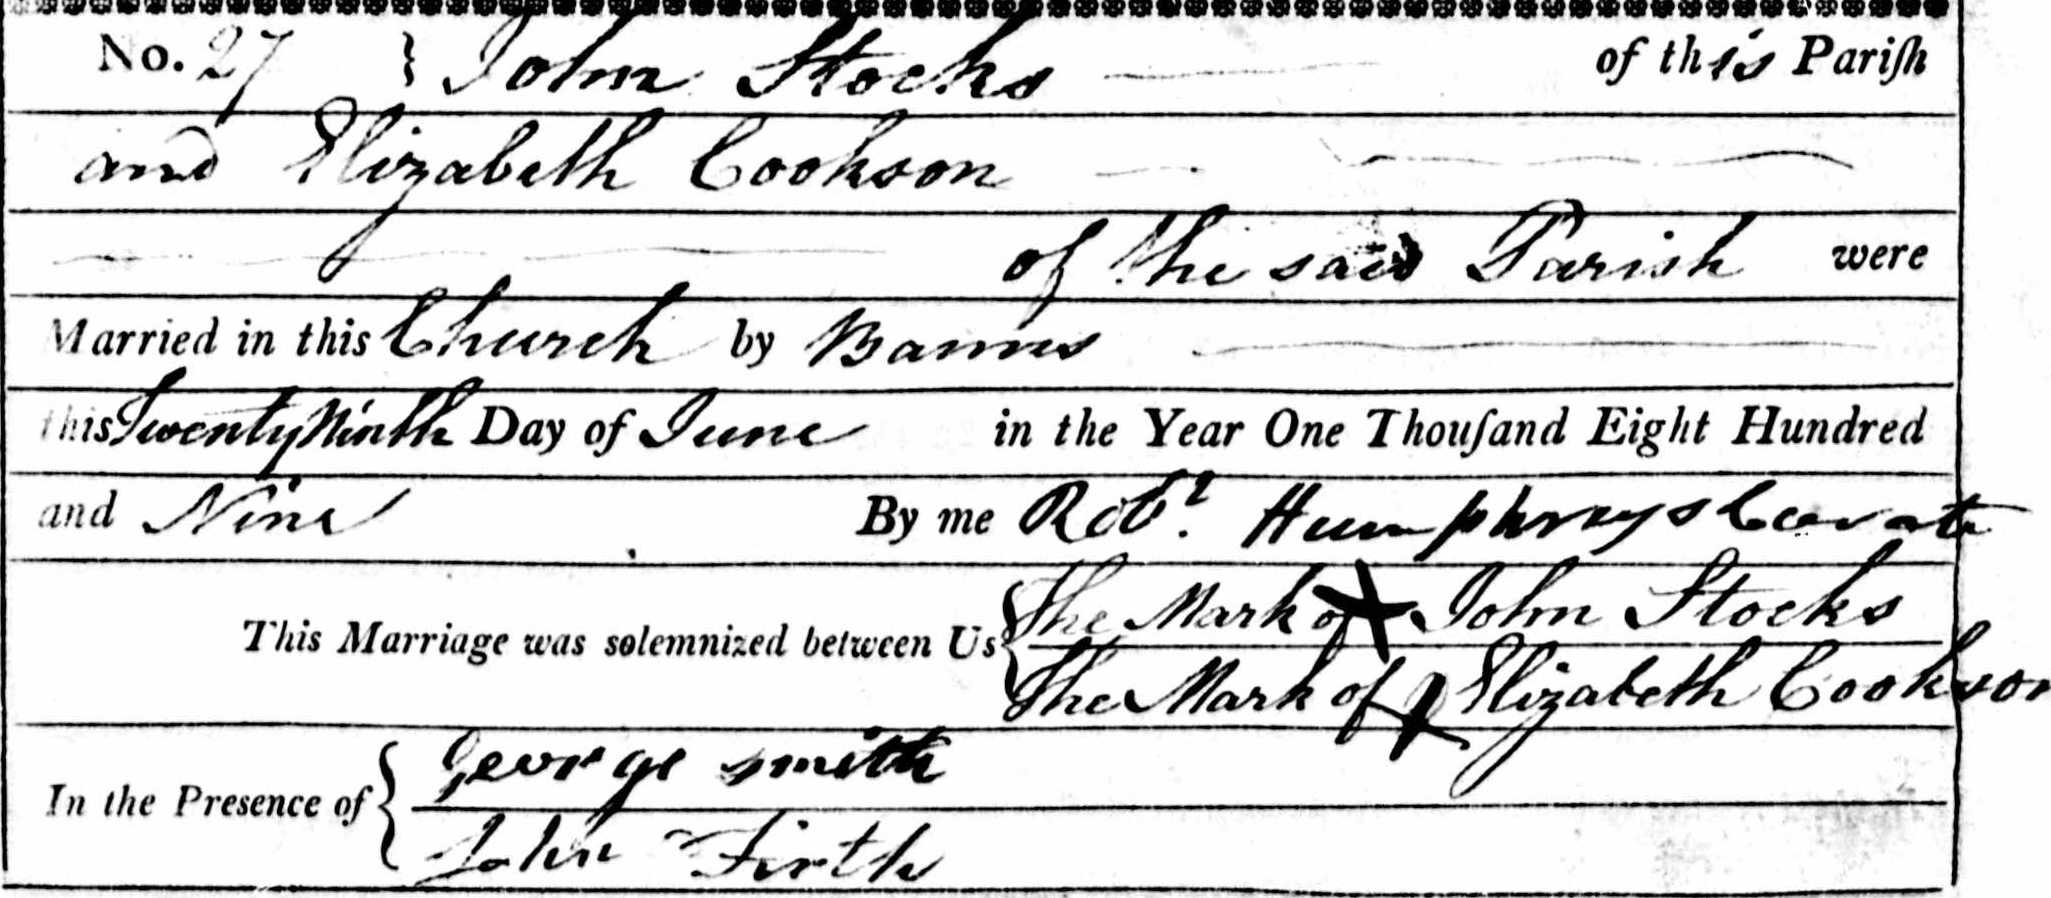 No. 27 } John Stocks of this Pariſh
and Elizabeth Cookson
of the said Parish were
Married in this Church by Banns
this Twenty Ninth Day of June in the Year One Thouſand Eight Hundred
and Nine By me Robt. Humphreys Curate
This Marriage was solemnized between Us { The Mark of X John Stocks
The Mark of X Elizabeth Cookson
In the Presence of { George smith
John Firth